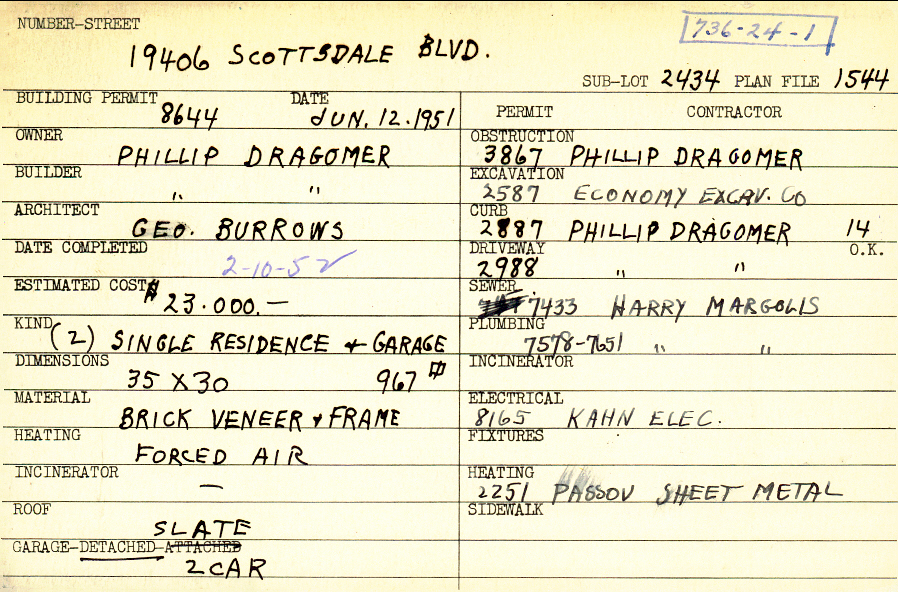 NUMBER-STREET
736-24-1
19406 SCOTTSDALE BLVD.
SUB-LOT 2434 PLAN FILE 1544
BUILDING PERMIT DATE
8644 JUN. 12. 1951
OWNER
PHILLIP DRAGOMER
BUILDER
" "
ARCHITECT
GEO. BURROWS
DATE COMPLETED
2-10-52
ESTIMATED COST
$23.000.—
KIND
(2) SINGLE RESIDENCE + GARAGE
DIMENSIONS
35 X 30 967
MATERIAL
BRICK VENEER + FRAME
HEATING
FORCED AIR
INCINERATOR
—
ROOF
SLATE
GARAGE-DETACHED-ATTACHED
2 CAR
PERMIT CONTRACTOR
OBSTRUCTION
3867 PHILLIP DRAGOMER
EXCAVATION
2587 ECONOMY EXCAV. CO
CURB
2887 PHILLIP DRAGOMER 14
DRIVEWAY O.K.
2988 " "
SEWER
7433 HARRY MARGOLIS
PLUMBING
7578-7651 " "
INCINERATOR
ELECTRICAL
8165 KAHN ELEC.
FIXTURES
HEATING
2251 PASSOV SHEET METAL
SIDEWALK